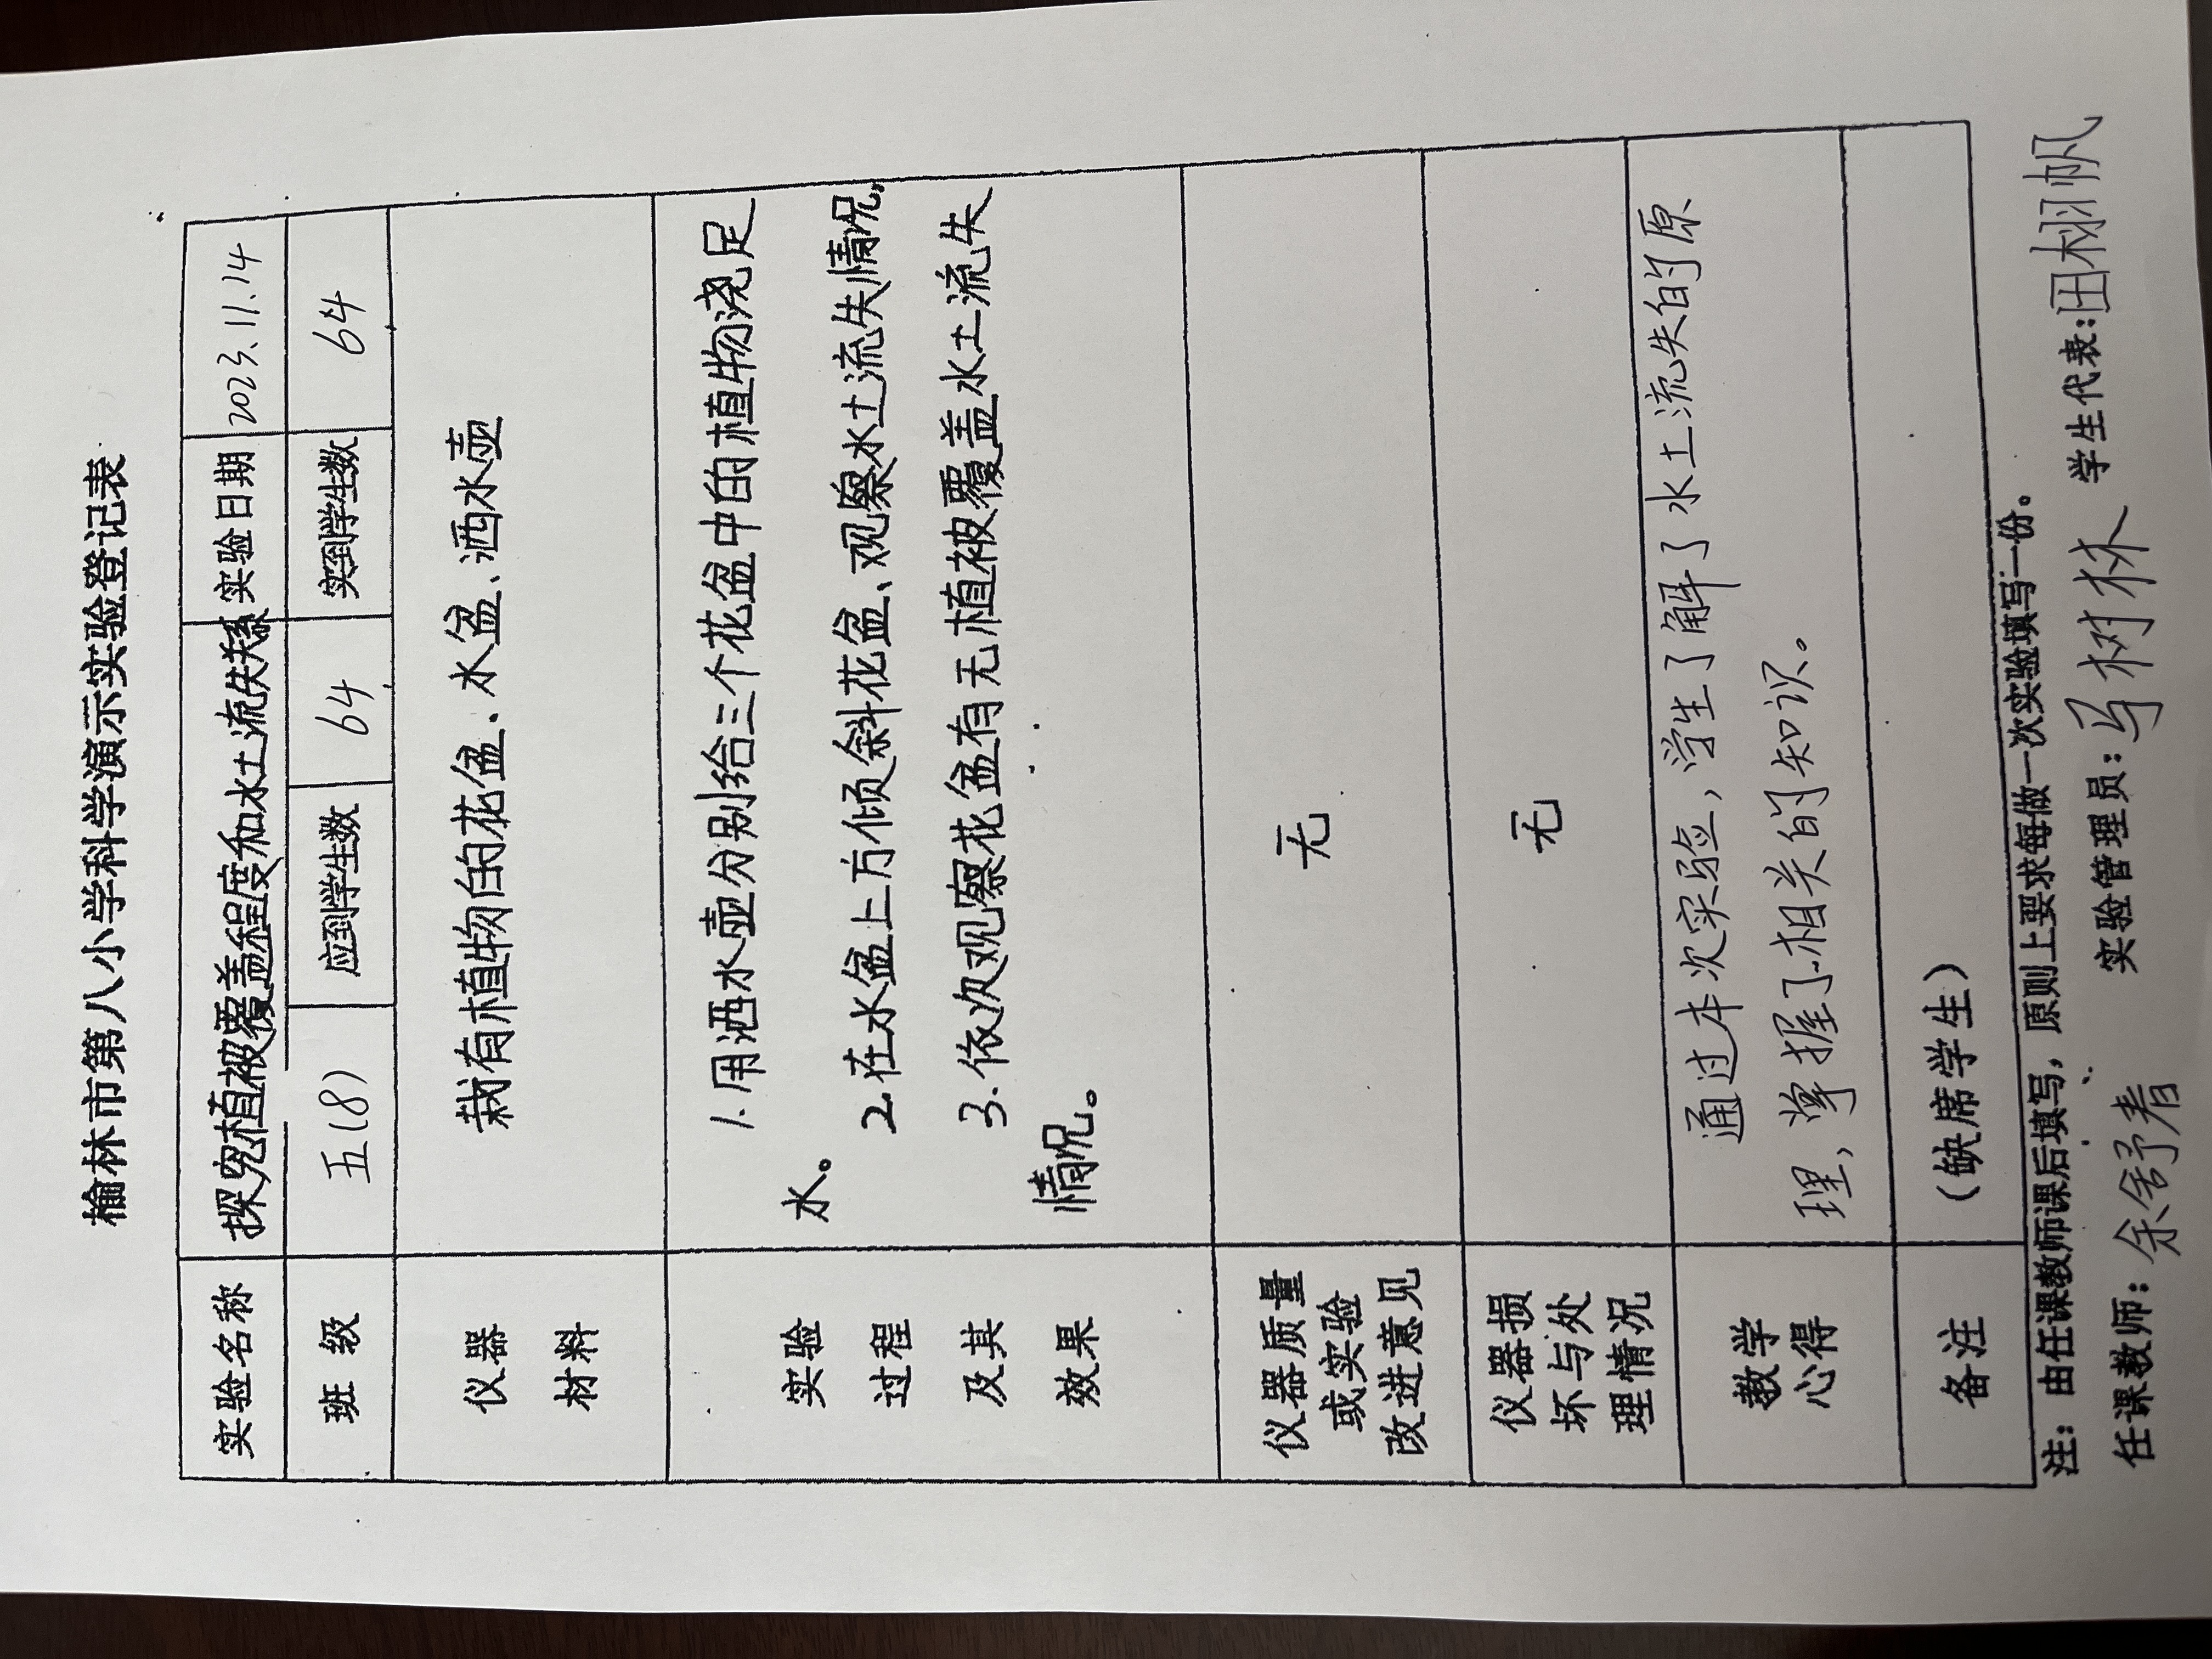 榆林市第八小学科学演示实验登记表
实验名称 探究植被覆盖程度和水土流失关系 实验日期 2023.11.14
班 级 五(8) 应到学生数 64 实到学生数 64
仪器
材料
栽有植物的花盆、水盆、洒水壶
实验
过程
及其
效果
1.用洒水壶分别给三个花盆中的植物浇足
水。
2.在水盆上方倾斜花盆、观察水土流失情况,
3.依次观察花盆有无植被覆盖水土流失
情况。
仪器质量
或实验
改进意见
无
仪器损
坏与处
理情况
无
教学
心得
通过本次实验,学生了解了水土流失的原
理,掌握了相关的知识。
备注 (缺席学生)
注:由任课教师课后填写,原则上要求每做一次实验填写一份。
任课教师: 余舒 实验管理员: 马树林 学生代表: 田栩帆